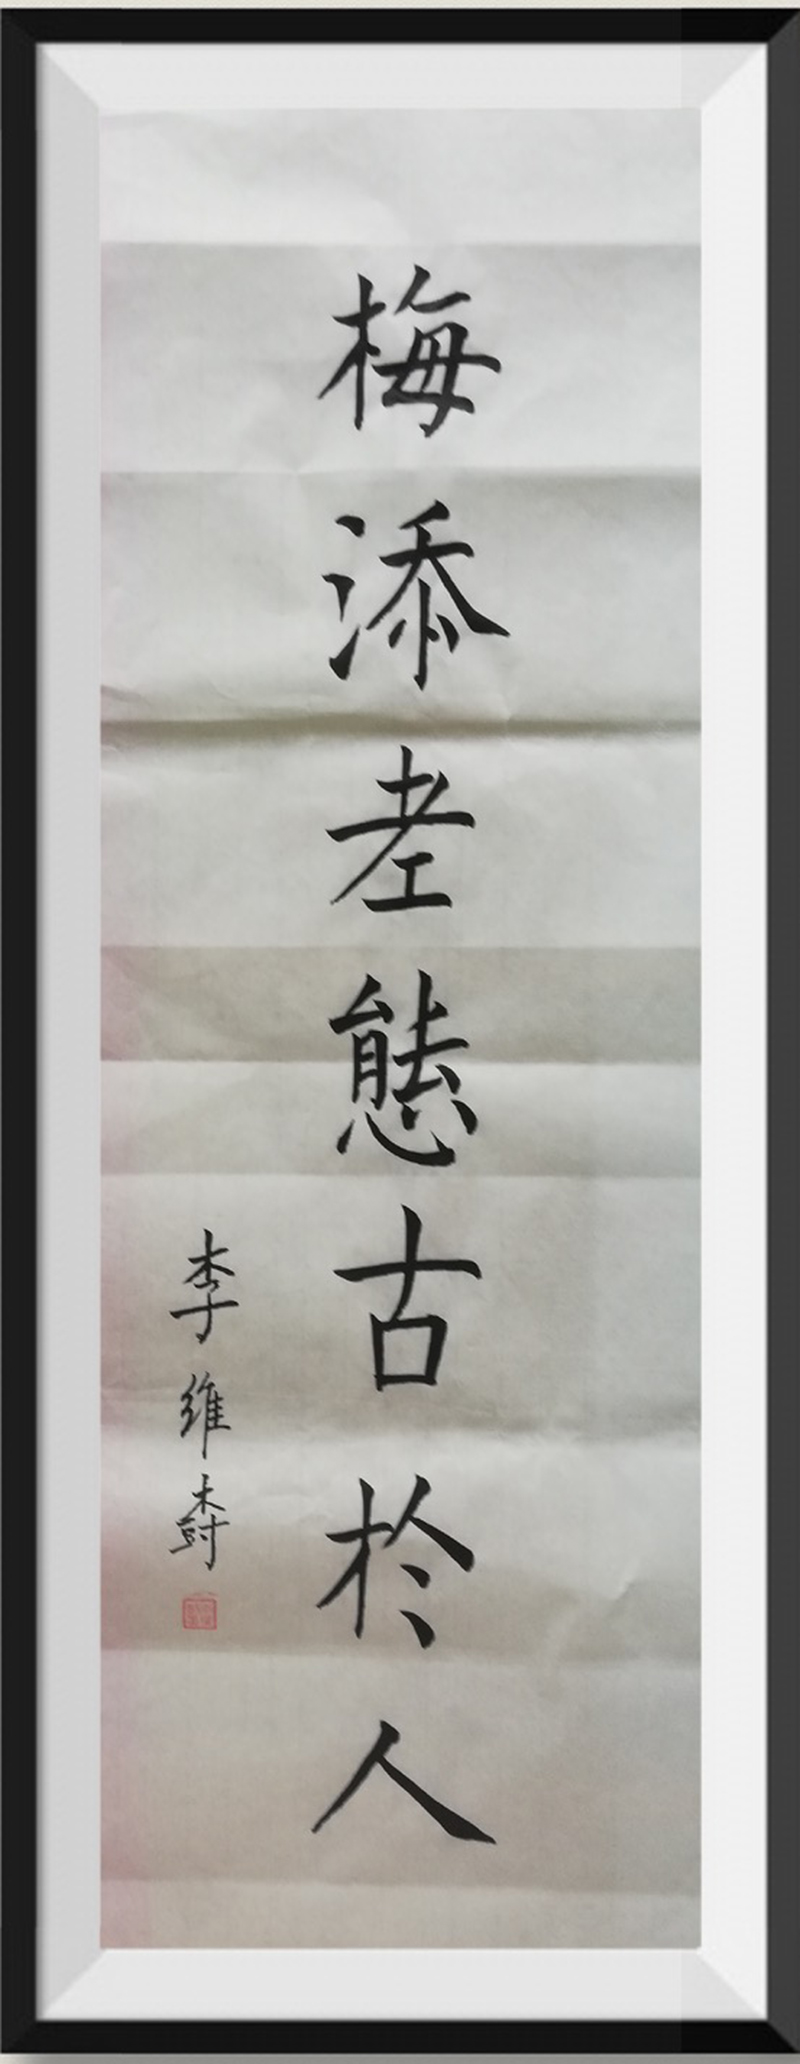 梅添老態古於人
李維樹